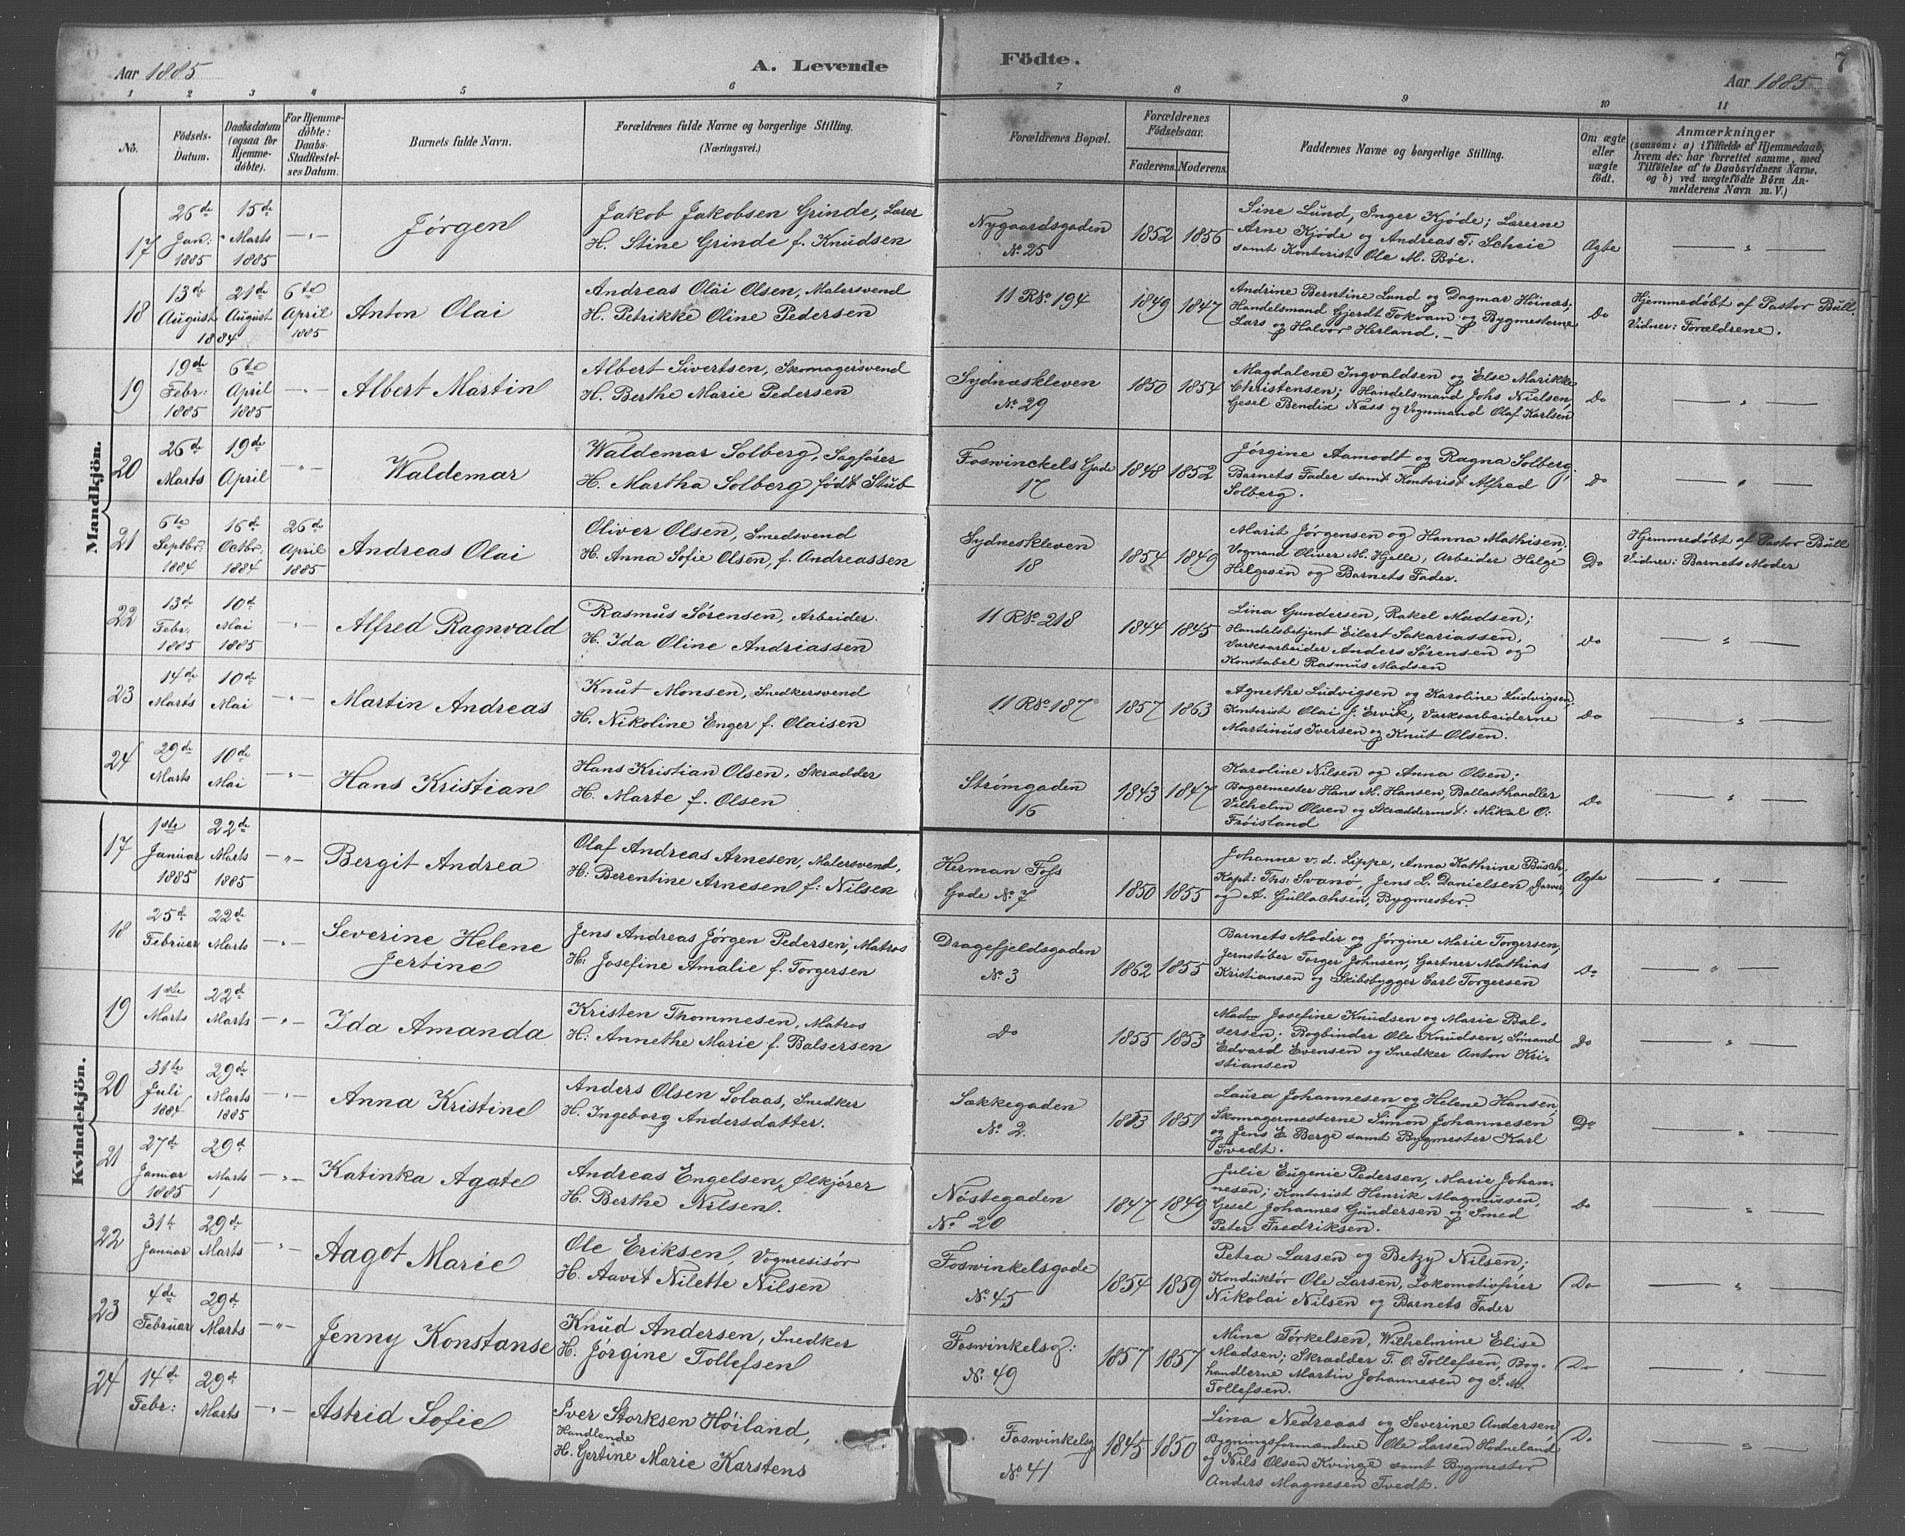 Aar 1885
A. Levende
Födte.
7
Aar 1885
1 2 3 4 5 6 7 8 9 10 11
No.
Födsels-
Datum.
Daabsdatum
(ogsaa for
Hjemme-
döbte).
For Hjemme-
döbte:
Daabs-
Stadfæstel-
ses Datum.
Barnets fulde Navn.
Forældrenes fulde Navne og borgerlige Stilling.
(Næringsvei.)
Forældrenes Bopæl.
Forældrenes
Födselsaar.
Faderens.
Moderens.
Faddernes Navne og borgerlige Stilling.
Om ægte
eller
uægte
födt.
Anmærkninger
(saasom: a) i Tilfælde af Hjemmedaab,
hvem der har forrettet samme, med
Tilföielse af to Daabsvidners Navne,
og b) ved uægtefödte Börn An-
melderens Navn m. V.)
Mandkjön.
17
26de
Jan.
1885
15de
Marts
1885
-"-
Jørgen
Jakob Jakobsen Grinde, Lærer
H. Stine Grinde f. Knudsen
Nygaardsgaden
No 25
1852
1856
Sine Lund, Inger Kjøde; Lærerne
Arne Kjøde og Andreas T. Scheie
samt Kontorist Ole M. Bøe.
Ægte
— " —
18
13de
August
1884
21de
August
6te
April
1885
Anton Olai
Andreas Olai Olsen, Malersvend
H. Petrikke Oline Pedersen
11 R No 194
1849
1847
Andrine Berntine Lund og Dagmar Höinæs;
Handelsmand Gjerdt Tokvam og Bygmesterne
Lars og Halvor Herland. —
Do
Hjemmedøbt af Pastor Bull.
Vidner: Forældrene.
19
19de
Febr:
1885
6te
April
1885
-"-
Albert Martin
Albert Sivertsen, Skomagersvend
H. Berthe Marie Pedersen
Sydnæskleven
No 29
1850
1854
Magdalene Ingvaldsen og Else Marikke
Christensen; Handelsmand Johs Nielsen,
Gesel Bendix Næss og Vognmand Olaf Karlsen
Do
— " —
20
26de
Marts
19de
April
-"-
Waldemar
Waldemar Solberg, Sagfører
H. Martha Solberg født Stub
Foswinckels Gade
17
1848
1852
Jørgine Aamodt og Ragna Solberg;
Barnets Fader samt Kontorist Alfred
Solberg.
Do
— " —
21
6te
Septbr.
1884
16de
Octbr.
1884
26de
April
1885
Andreas Olai
Oliver Olsen, Smedsvend
H. Anna Sofie Olsen f. Andreassen
Sydneskleven
18
1854
1849
Marit Jörgensen og Hanna Mathisen,
Vognand Oliver M. Hjelle, Arbeider Helge
Helgesen og Barnets Fader.
Do
Hjemmedøbt af Pastor Bull
Vidner: Barnets Moder
22
13de
Febr.
1885
10de
Mai
1885
-"-
Alfred Ragnvald
Rasmus Sørensen, Arbeider
H. Ida Oline Andriassen
11 R No 218
1844
1845
Lina Gundersen, Rakel Madsen;
Handelsbetjent Eilert Sakariassen,
Værksarbeider Anders Sørensen og
Konstabel Rasmus Madsen
Do
— " —
23
14de
Marts
10de
Mai
-"-
Martin Andreas
Knut Monsen, Snedkersvend
H. Nikoline Enger f. Olaisen
11 R No 187
1857
1863
Agnethe Ludvigsen og Karoline Ludvigsen;
Kontorist Olai J. Ervik, Værksarbeiderne
Martinus Iversen og Knut Olsen.
Do
— " —
24
29de
Marts
10de
Mai
-"-
Hans Kristian
Hans Kristian Olsen, Skrædder
H. Marte f. Olsen
Strømgaden
16
1843
1847
Karoline Nilsen og Anna Olsen;
Bagermester Hans M. Hansen, Ballasthandler
Vilhelm Olsen og Skræddermst: Mikal O.
Frøisland
Do
— " —
Kvindekjön.
17
1ste
Januar
1885
22de
Marts
1885
-"-
Bergit Andrea
Olaf Andreas Arnesen, Malersvend,
H. Berentine Arnesen f: Nilsen
Herman Foss
Gade No 7
1850
1855
Johanne v. d. Lippe, Anna Kathrine Busch,
Kapt: Ths: Svanö, Jens L. Danielsen, Farver,
og A. Gullachsen, Bygmester.
Ægte
— " —
18
25de
Februar
22de
Marts
-"-
Severine Helene
Jertine
Jens Andreas Jörgen Pedersen, Matros
H: Josefine Amalie f. Torgersen
Dragefjeldsgaden
No 3
1862
1855
Barnets Moder og Jörgine Marie Torgersen,
Jernstöber Torger Johnsen, Gartner Mathias
Kristiansen og Skibsbygger Carl Torgersen
Do
— " —
19
1ste
Marts
22de
Marts
-"-
Ida Amanda
Kristen Thommesen, Matros
H: Annethe Marie f. Balsersen
Do
1855
1853
Madm Josefine Knudsen og Marie Bal-
sersen; Bogbinder Ole Knudsen, Sömand
Edvard Evensen og Snedker Anton Kri-
stiansen
Do
— " —
20
31te
Juli
1884
29de
Marts
1885
-"-
Anna Kristine
Anders Olsen Solaas, Snedker
H. Ingeborg Andersdatter.
Sækkegaden
No 2.
1853
1851
Laura Johannesen og Helene Hansen,
Skomagermesterne Simon Johannesen
og Jens E. Berge samt Bygmester Karl
Tvedt.
Do
— " —
21
27de
Januar
1885
29de
Marts
-"-
Katinka Agate
Andreas Engelsen, Ølkjører
H. Berthe Nilsen.
Nøstegaden
No 20
1847
1849
Julie Eugenie Pedersen, Marie Johan-
nesen; Kontorist Henrik Magnussen,
Gesel Johannes Gundersen og Smed
Peter Fredriksen.
Do
— " —
22
31te
Januar
29de
Marts
-"-
Aagot Marie
Ole Eriksen, Vognresisør
H. Aavit Nilette Nilsen
Foswinkelsgade
No 45
1854
1859
Petra Larsen og Betzy Nilsen;
Konduktør Ole Larsen, Lokomotivfører
Nikolai Nilsen og Barnets Fader
Do
— " —
23
4de
Februar
29de
Marts
-"-
Jenny Konstanse
Knud Andersen, Snedker
H. Jörgine Tollefsen
Foswinkelsg:
No 49
1857
1857
Mina Törkelsen, Wilhelmine Elise
Madsen; Skrædder T. O. Tollefsen, Bog-
handlerne Martin Johannesen og J. M.
Tollefsen.
Do
— " —
24
14de
Febr:
29de
Marts
-"-
Astrid Sofie
Iver Storksen Høiland,
Handlende
H. Gertine Marie Karstens
Foswinkelsg
No 41
1845
1850
Lina Nedreaas og Severine Andersen
Bygningsformændene Ole Larsen Hodneland
og Nils Olsen Kvinge samt Bygmester
Anders Magnesen Tvedt.
Do
— " —